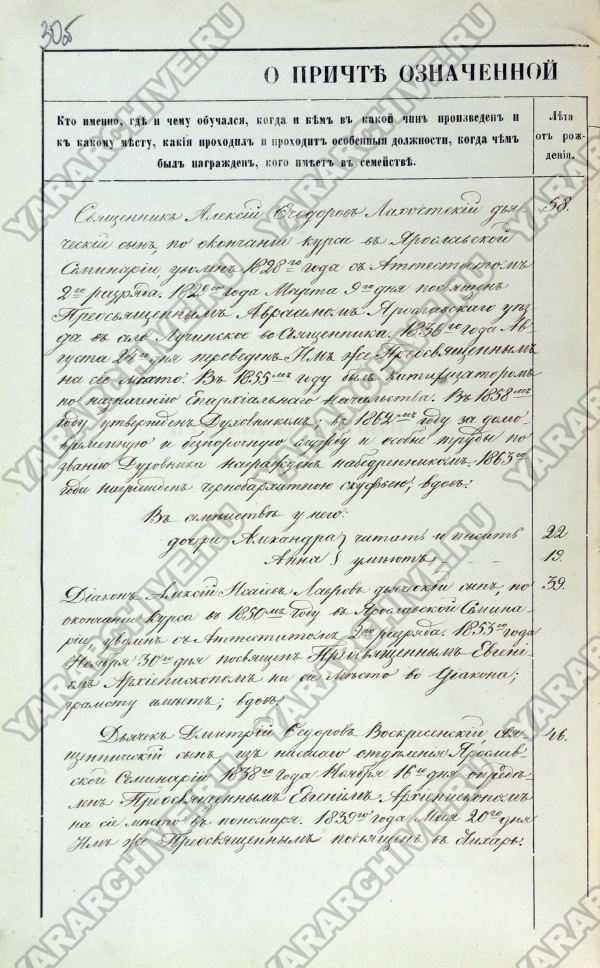 30об
О ПРИЧТѢ ОЗНАЧЕННОЙ
Кто именно, гдѣ и чему обучался, когда и кѣмъ въ какой чинъ произведенъ и
къ какому мѣсту, какія проходилъ и проходитъ особенныя должности, когда чѣмъ
былъ награжденъ, кого имѣетъ въ семействѣ.
Лѣта
отъ рож-
денія.
Священникъ Алексій Ѳеодоровъ Лахостскій дья- 58.
ческій сынъ, по окончаніи курса въ Ярославской
Семинаріи, уволенъ 1828го года съ Аттестатомъ
2го разряда. 1829го года Марта 9го дня посвященъ
Преосвященнымъ Авраамомъ Ярославскаго уѣз-
да въ село Лучинское во Священника. 1836го года Ав-
густа 24го дня переведенъ Имъ же Преосвященнымъ
на сіе мѣсто. Въ 1855мъ году былъ катихизаторомъ
по назначенію Епархіальнаго Начальства. Въ 1858мъ
году утвержденъ Духовникомъ; въ 1862мъ году за долго-
временную и безпорочную службу и особые труды по
званію Духовника награжденъ набедренникомъ. 1863го
года награжденъ чернобархатною скуфьею; вдовъ.
Въ семействѣ у него:
дочери Александра } читать и писать 22.
Анна } умѣютъ 19.
Діаконъ Алексій Исаіевъ Лавровъ дьяческій сынъ, по 39.
окончаніи курса въ 1850мъ году въ Ярославской Семина-
ріи уволенъ съ Аттестатомъ 2го разряда. 1853го года
Ноября 30го дня посвященъ Преосвященнымъ Евгені-
емъ Архіепископомъ на сіе мѣсто во Діакона;
грамоту имѣетъ; вдовъ.
Дьячекъ Дмитрій Ѳедоровъ Воскресенскій свя- 46.
щенническій сынъ изъ низшаго отдѣленія Ярослав-
ской Семинаріи 1838го года Ноября 16го дня опредѣ-
ленъ Преосвященнымъ Евгеніемъ Архіепископомъ
на сіе мѣсто въ пономаря. 1839го года Мая 20го дня
Имъ же Преосвященнымъ посвященъ въ Стихарь.
YARARCHIVE.RU